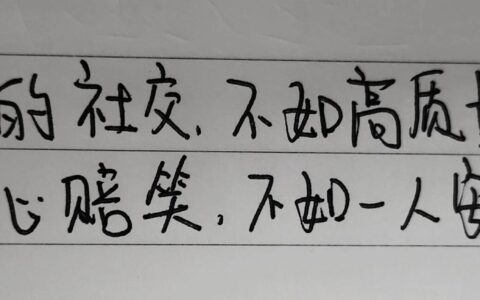 的社交,不如高质
心赔笑,不如一人